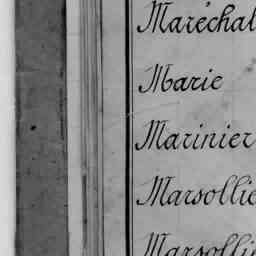 Maréchal
Marie
Marinier
Marsollie
Marsollie